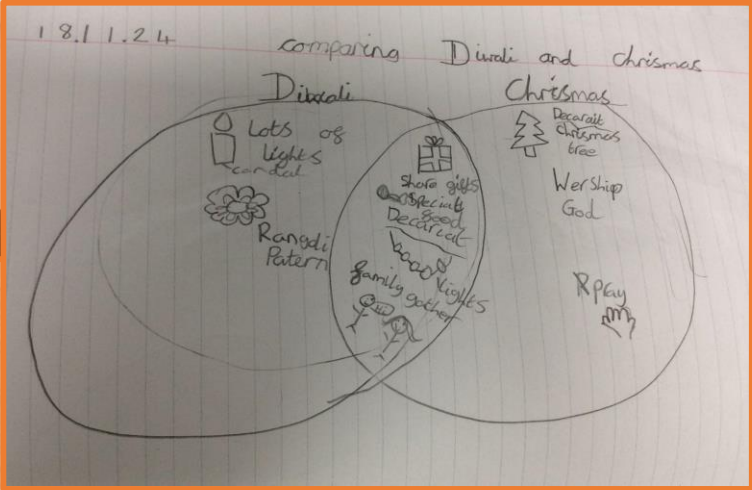 18.11.24
comparing Diwali and chrismas
Diwali
Chrismas
Lots of
lights
candal
Rangdi
Patern
Share gifts
Special
good
Decariat
lights
family gather
Decarait
chrismas
tree
Wership
God
pray